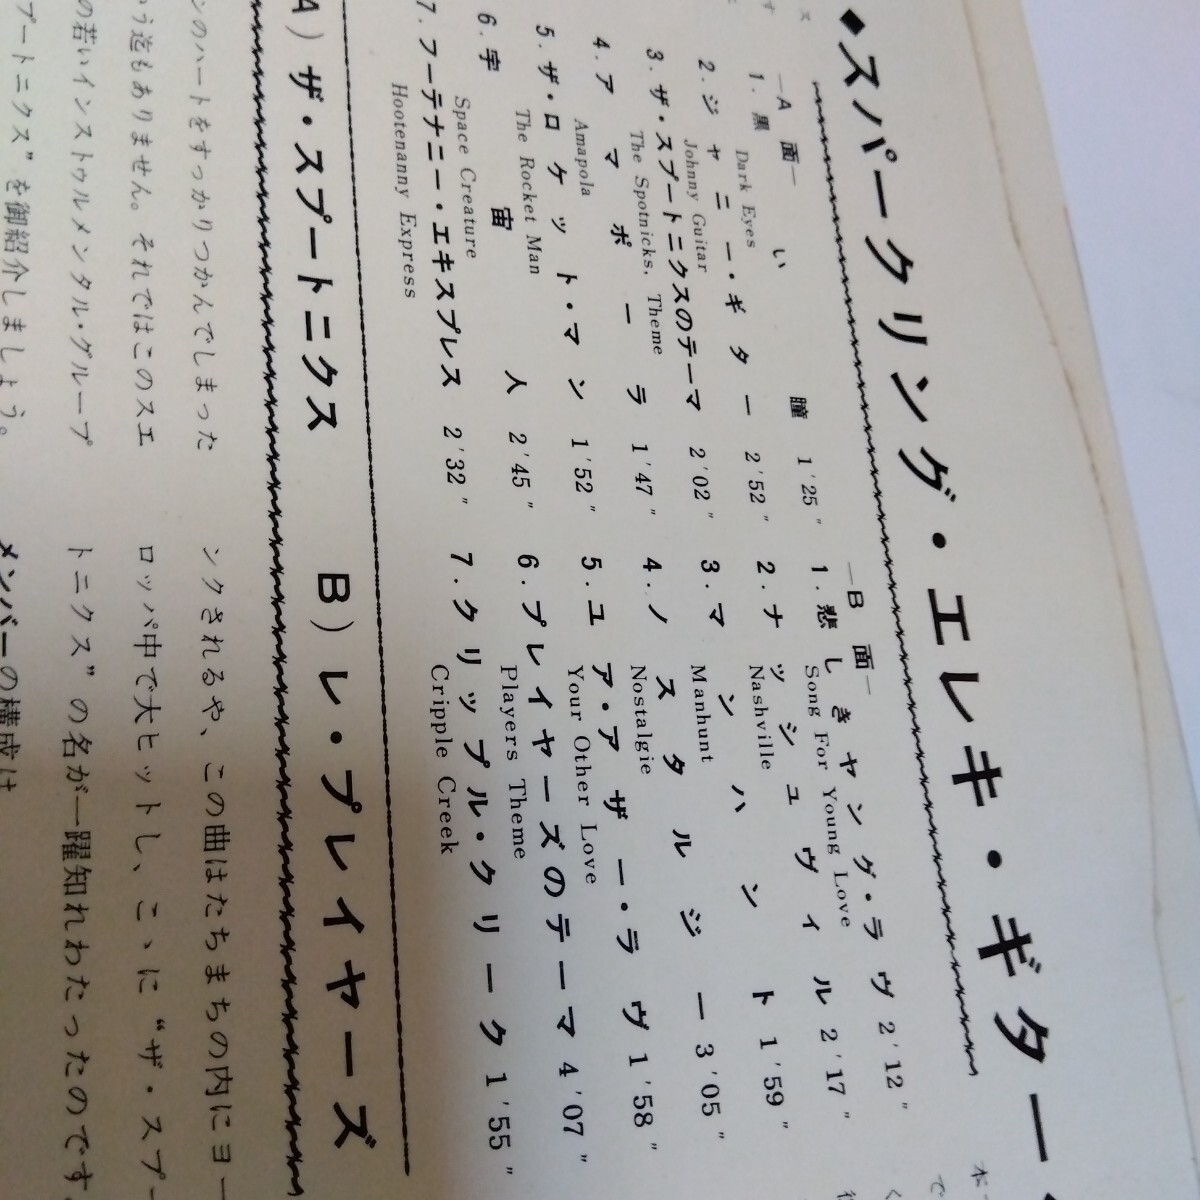 ◆スパークリング・エレキ・ギター
—A 面—
1. 黒い瞳 1′25″
Dark Eyes
2. ジャニー・ギター 2′52″
Johnny Guitar
3. ザ・スプートニクスのテーマ 2′02″
The Spotnicks, Theme
4. アマポーラ 1′47″
Amapola
5. ザ・ロケット・マン 1′52″
The Rocket Man
6. 宇宙人 2′45″
Space Creature
7. フーテナニー・エキスプレス 2′32″
Hootenanny Express
—B 面—
1. 悲しきヤング・ラヴ 2′12″
Song For Young Love
2. ナッシュヴィル 2′17″
Nashville
3. マンハント 1′59″
Manhunt
4. ノスタルジー 3′05″
Nostalgie
5. ユア・アザー・ラヴ 1′58″
Your Other Love
6. プレイヤーズのテーマ 4′07″
Players Theme
7. クリップル・クリーク 1′55″
Cripple Creek
A) ザ・スプートニクス B) レ・プレイヤーズ
ンのハートをすっかりつかんでしまった
う迄もありません。それではこのスエ
の若いインストゥルメンタル・グループ
プートニクス”を御紹介しましょう。
ンクされるや、この曲はたちまちの内にヨー
ロッパ中で大ヒットし、こゝに“ザ・スプー
トニクス”の名が一躍知れわたったのです。
メンバーの構成は